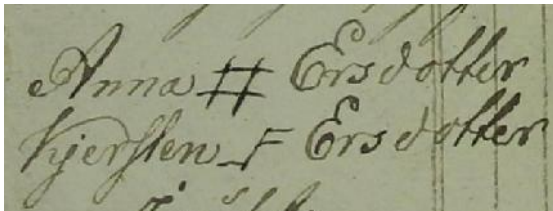 Anna # Ersdotter
Kjersten Ersdotter